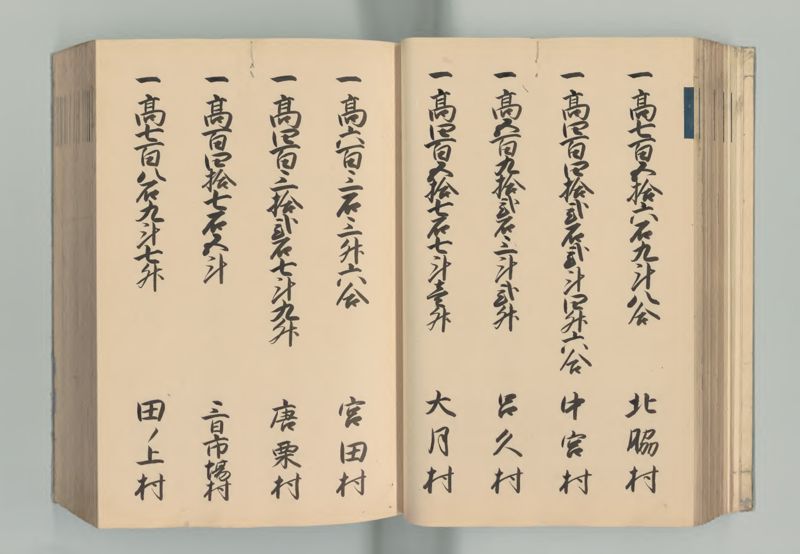 一高七百五拾六石九斗八合 北脇村
一高四百四拾弐石弐斗四升六合 中宮村
一高五百九拾弐石三斗弐升 呂久村
一高四百五拾七石七斗壱升 大月村
一高六百三石三升六合 宮田村
一高四百三拾弐石七斗九升 唐栗村
一高百四拾七石五斗 三日市場村
一高七百八石九斗七升 田ノ上村